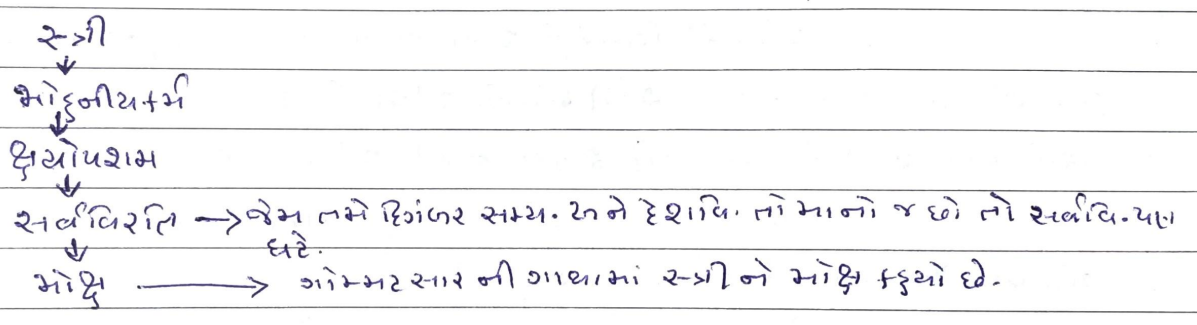 સ્ત્રી
↓
મોહનીયકર્મ
↓
ક્ષયોપશમ
↓
સર્વવિરતિ → જેમ તમે દિગંબર સમ્ય. અને દેશવિ. તો માનો જ છો તો સર્વવિ. પણ
↓ ઘટે.
મોક્ષ → ગોમ્મટસાર ની ગાથામાં સ્ત્રી ને મોક્ષ કહ્યો છે.